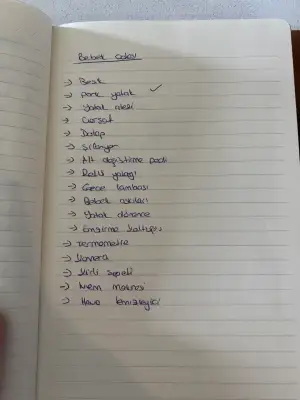 Bebek odası
→ Beşik
→ Park yatak ✓
→ Yatak alezi
→ Çarşaf
→ Dolap
→ Şifonyer
→ Alt değiştirme pedi
→ yatağı
→ Gece lambası
→ Bebek askıları
→ Yatak dönence
→ Emzirme koltuğu
→ Termometre
→ Kamera
→ Kirli sepeti
→ makinesi
→ Hava temizleyici